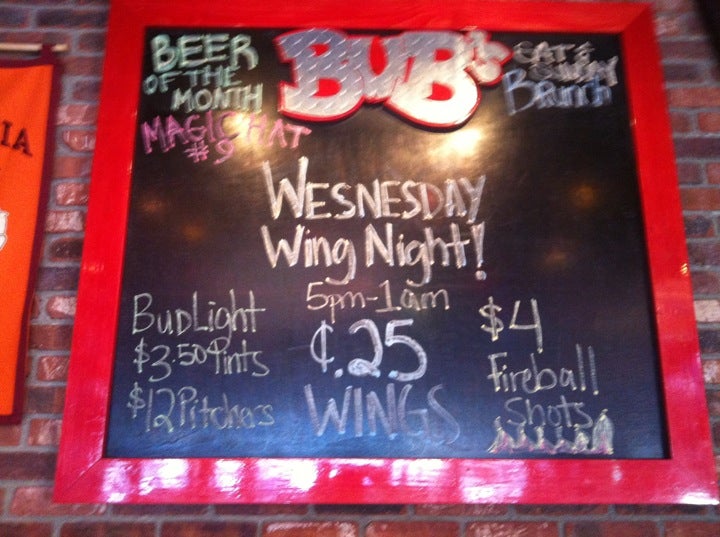 BEER
OF THE
MONTH
MAGIC HAT
#9
BUB's
EAT &
SUNDAY
BRUNCH
WESNESDAY
Wing Night!
5pm-1am
¢.25
WINGS
Bud Light
$3.50 Pints
$12 Pitchers
$4
Fireball
Shots
IA